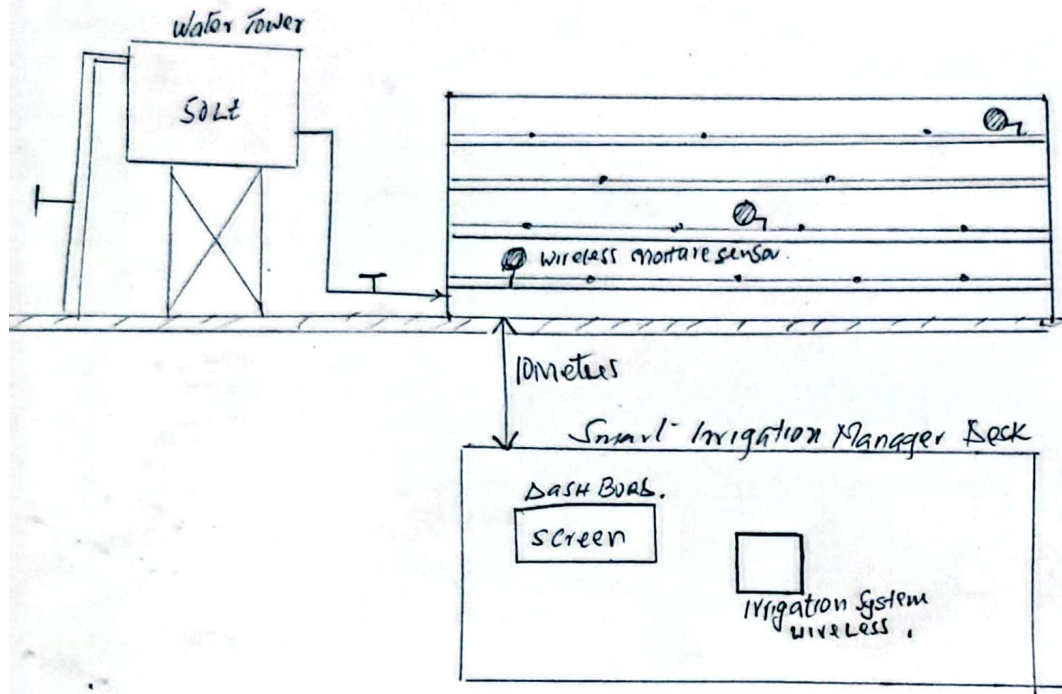 Water Tower
50Lt
wireless morture sensor.
10Meters
Smart Irrigation Manager Desk
DASH BORD.
screen
Irrigation System
wireless.